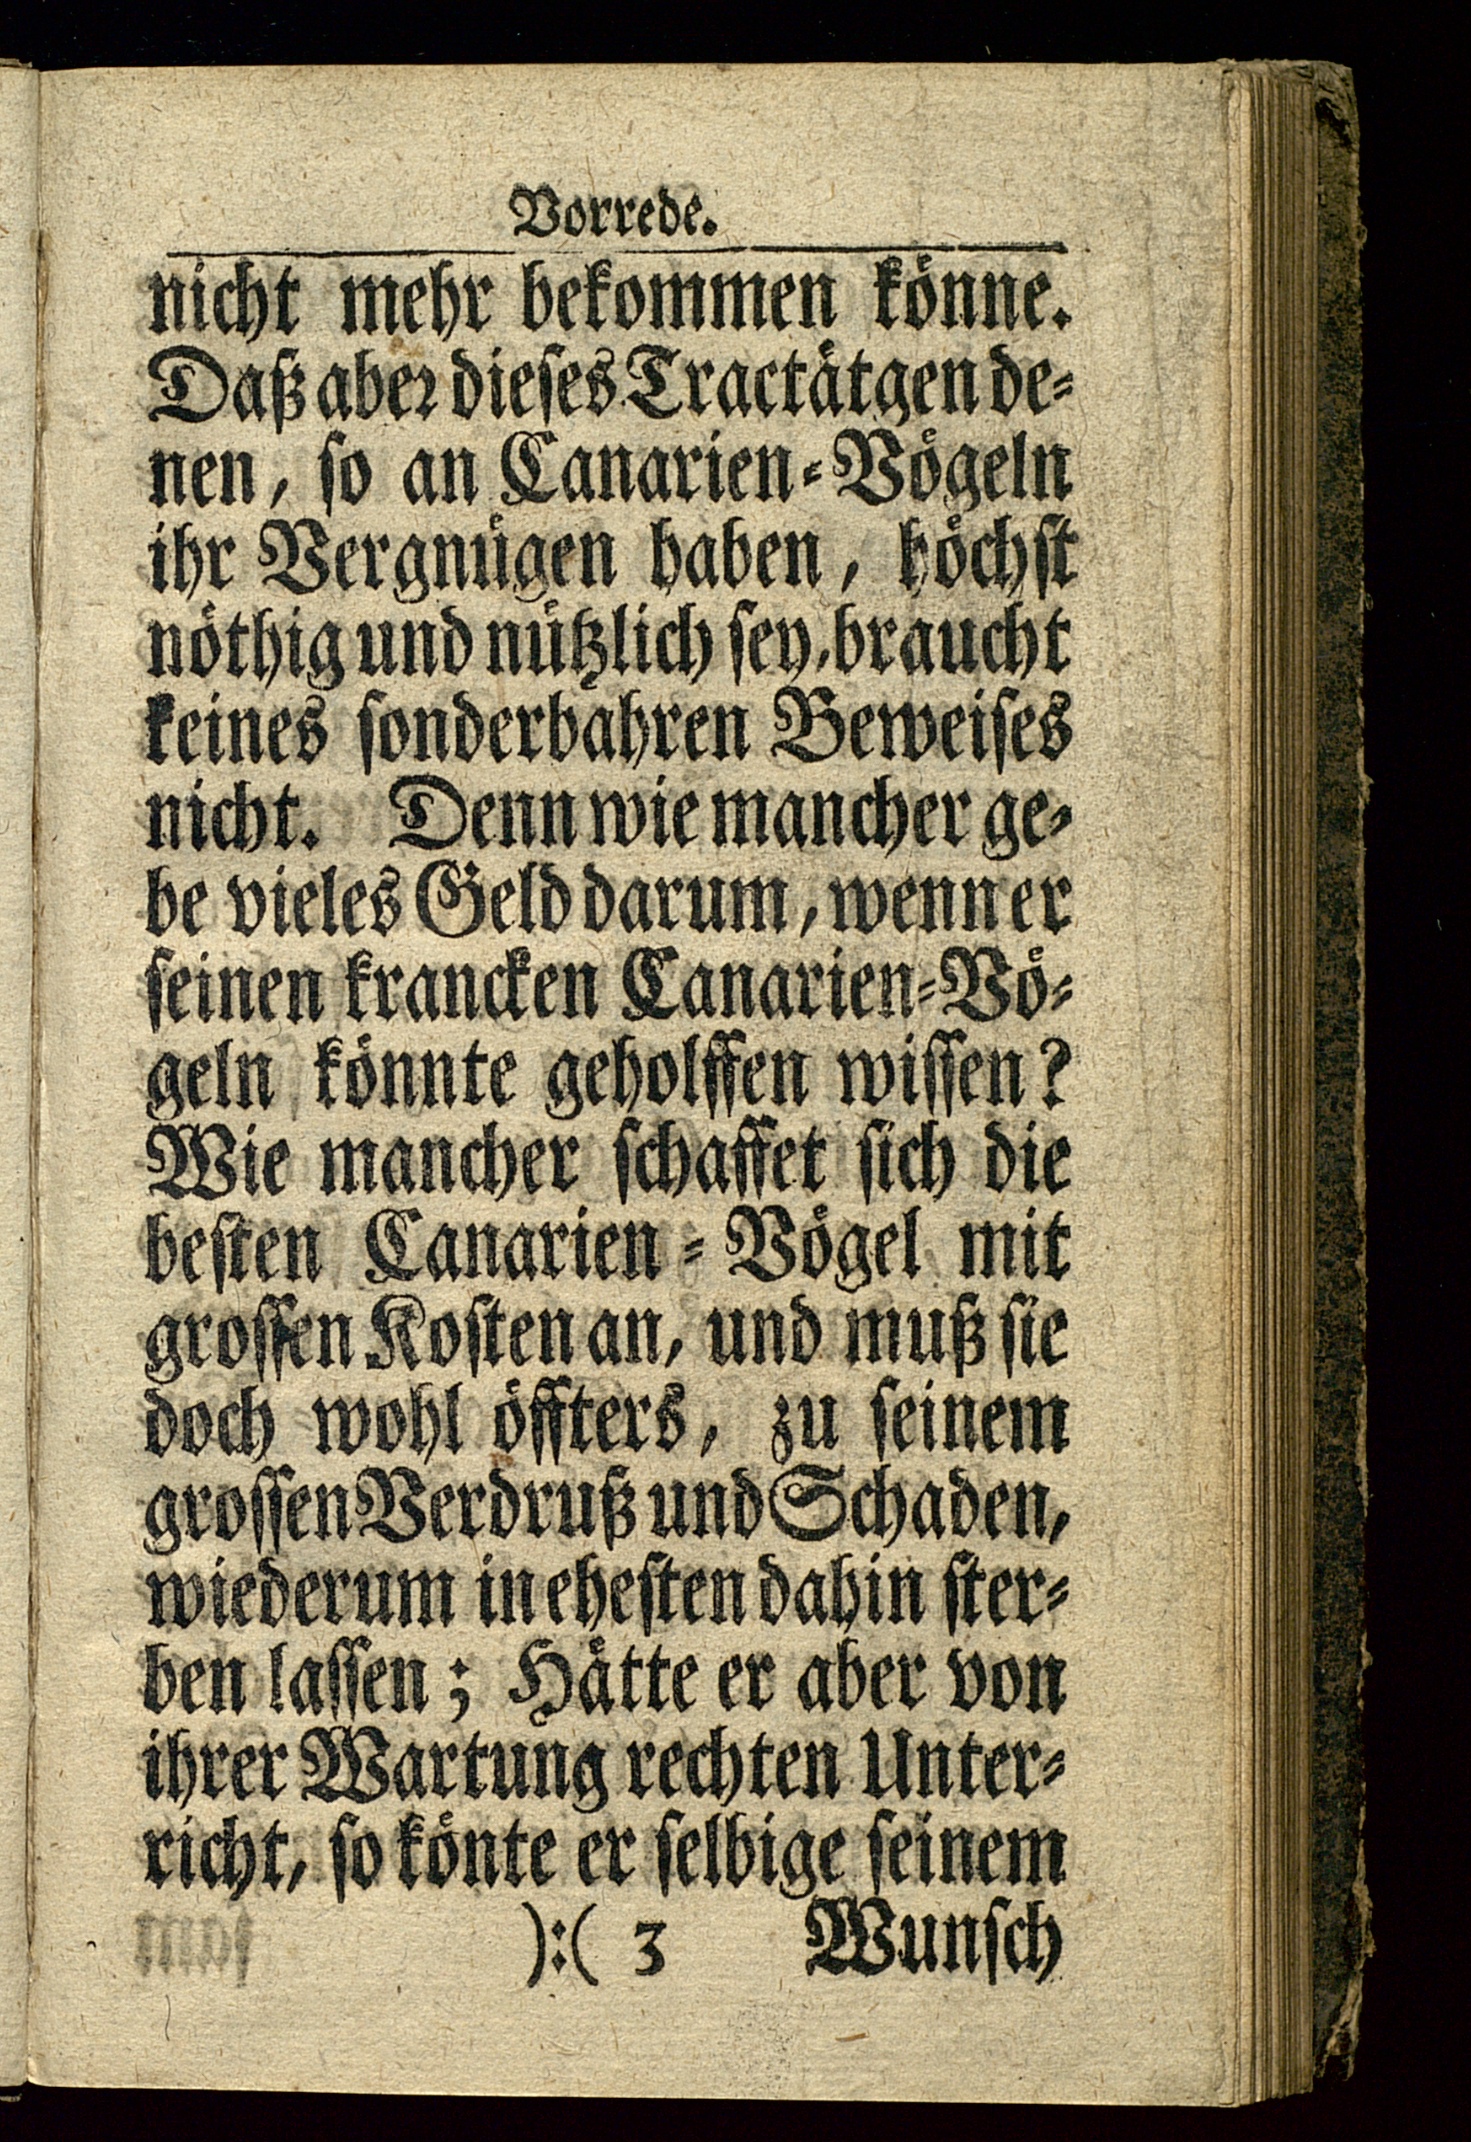 Vorrede.
nicht mehr bekommen könne.
Daß aber dieses Tractätgen de-
nen, so an Canarien-Vögeln
ihr Vergnügen haben, höchst
nöthig und nützlich sey, braucht
keines sonderbahren Beweises
nicht. Denn wie mancher ge-
be vieles Geld darum, wenn er
seinen krancken Canarien-Vö-
geln könnte geholffen wissen?
Wie mancher schaffet sich die
besten Canarien-Vögel mit
grossen Kosten an, und muß sie
doch wohl öffters, zu seinem
grossen Verdruß und Schaden,
wiederum in ehesten dahin ster-
ben lassen; Hätte er aber von
ihrer Wartung rechten Unter-
richt, so könte er selbige seinem
):( 3 Wunsch